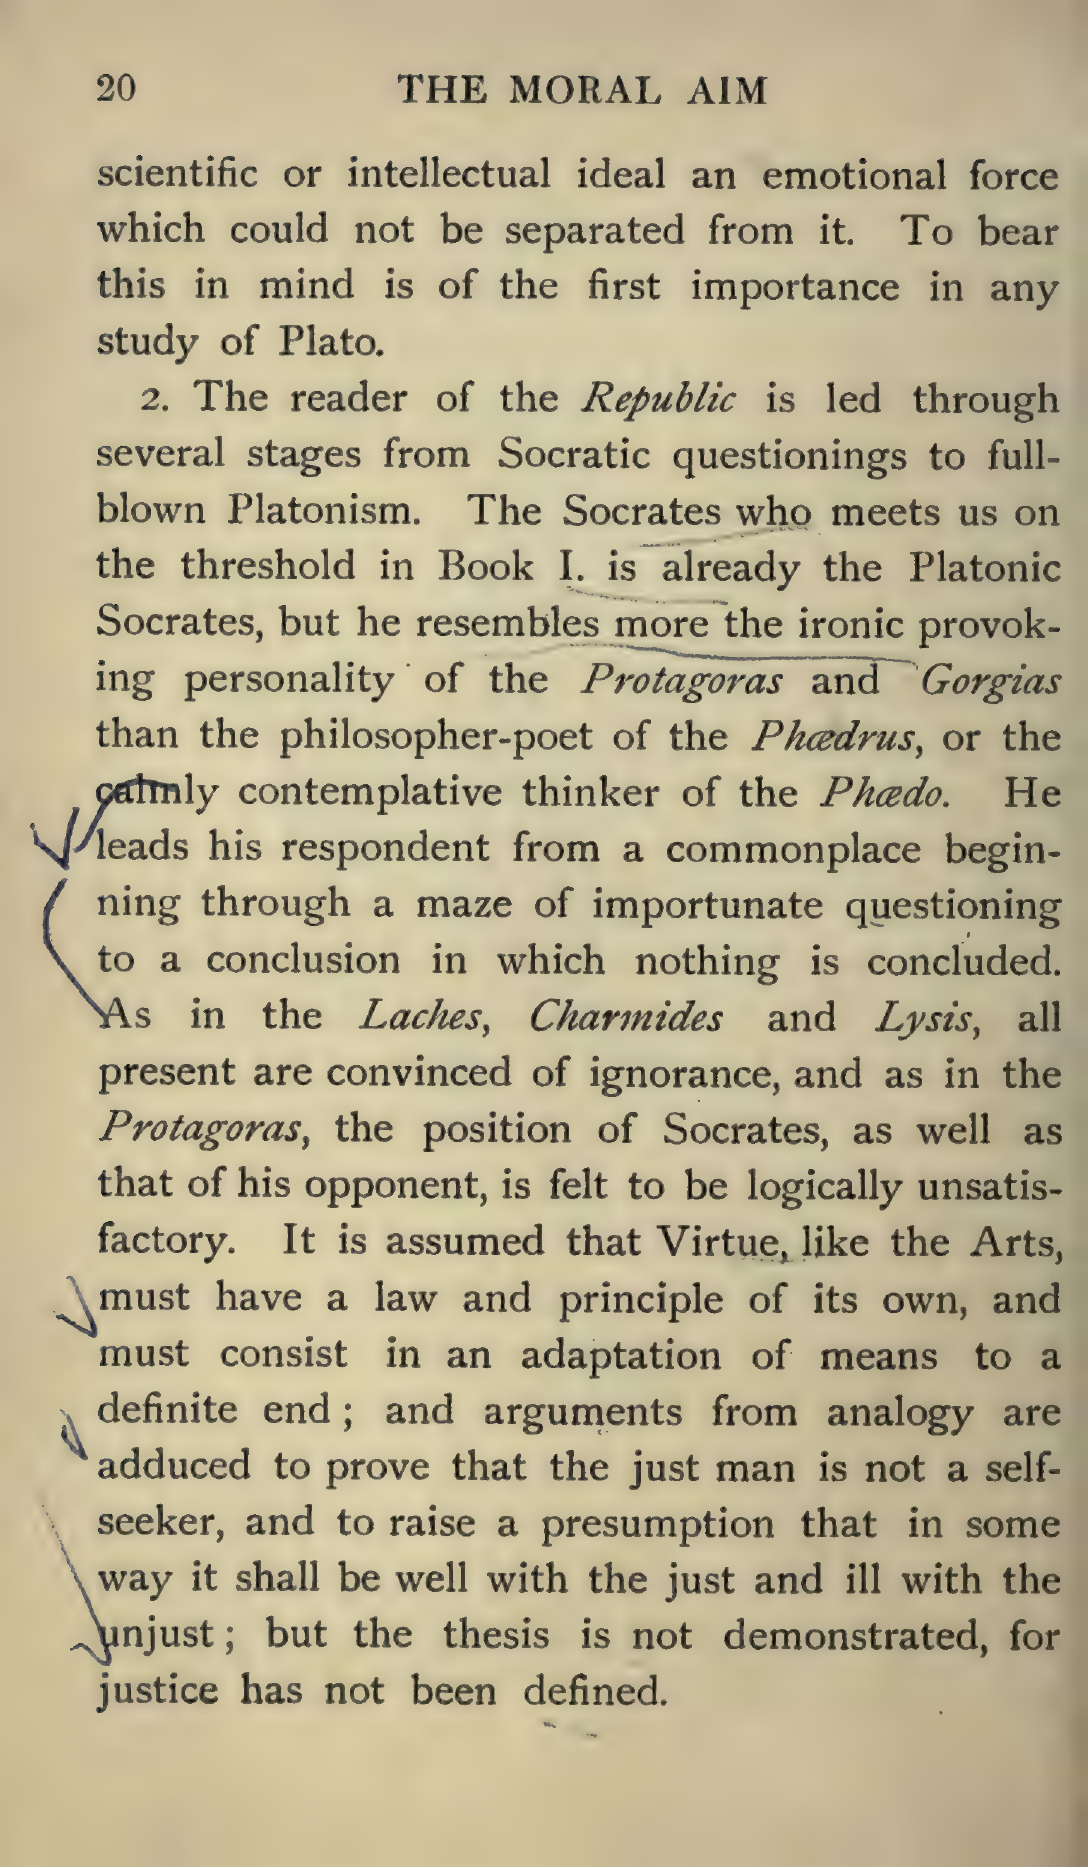 20 THE MORAL AIM
scientific or intellectual ideal an emotional force
which could not be separated from it. To bear
this in mind is of the first importance in any
study of Plato.
2. The reader of the Republic is led through
several stages from Socratic questionings to full-
blown Platonism. The Socrates who meets us on
the threshold in Book I. is already the Platonic
Socrates, but he resembles more the ironic provok-
ing personality of the Protagoras and Gorgias
than the philosopher-poet of the Phædrus, or the
calmly contemplative thinker of the Phædo. He
leads his respondent from a commonplace begin-
ning through a maze of importunate questioning
to a conclusion in which nothing is concluded.
As in the Laches, Charmides and Lysis, all
present are convinced of ignorance, and as in the
Protagoras, the position of Socrates, as well as
that of his opponent, is felt to be logically unsatis-
factory. It is assumed that Virtue, like the Arts,
must have a law and principle of its own, and
must consist in an adaptation of means to a
definite end ; and arguments from analogy are
adduced to prove that the just man is not a self-
seeker, and to raise a presumption that in some
way it shall be well with the just and ill with the
unjust ; but the thesis is not demonstrated, for
justice has not been defined.